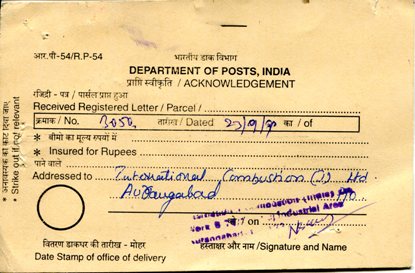 आर.पी-54/R.P-54
भारतीय डाक विभाग
DEPARTMENT OF POSTS, INDIA
प्राप्ति स्वीकृति / ACKNOWLEDGEMENT
रजिस्ट्री - पत्र / पार्सल प्राप्त हुआ
Received Registered Letter / Parcel /
क्रमांक / No. 3050 तारीख / Dated 27/9/ का / of
* बीमो का मूल्य रुपयों में
* Insured for Rupees
पाने वाले
Addressed to International Combustion (I) Ltd
Aurangabad
Industrial Area
on
वितरण डाकघर की तारीख - मोहर
हस्ताक्षर और नाम /Signature and Name
Date Stamp of office of delivery
* अनावश्यक को काट दिया जाए
* Strike out if not relevant